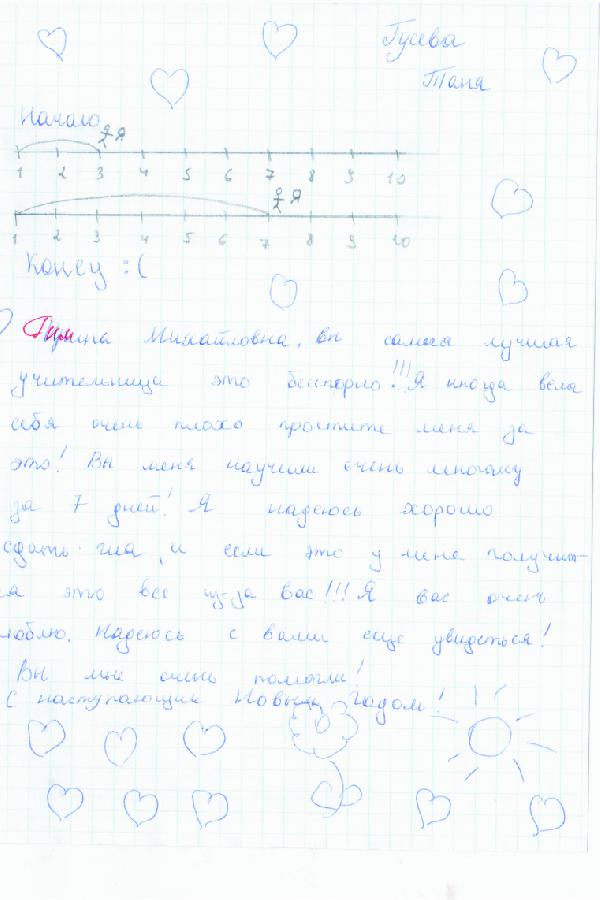 Гусева
Таня
Начало
Я
1 2 3 4 5 6 7 8 9 10
Я
1 2 3 4 5 6 7 8 9 10
Конец :(
Михайловна, вы самая лучшая
учительница это бесспорно!!!Я иногда вела
себя очень плохо простите меня за
это! Вы меня научили очень многому
за 7 дней! Я надеюсь хорошо
сдать гиа, и если это у меня получит-
я это все из-за вас!!! Я вас очень
люблю. Надеюсь с вами еще увидеться!
Вы мне очень помогли!
С наступающим Новым Годом!